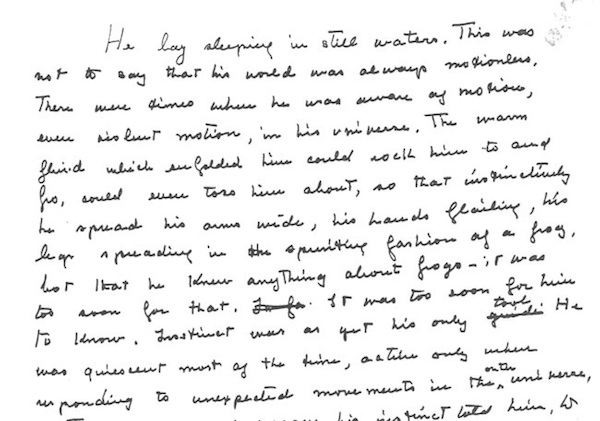 He lay sleeping in still waters. This was
not to say that his world was always motionless.
There were times when he was aware of motion,
even violent motion, in his universe. The warm
fluid which enfolded him could rock him to and
fro, could even toss him about, so that instinctively
he spread his arms wide, his hands flailing, his
legs spreading in the sprawling fashion of a frog.
Not that he knew anything about frogs – it was
too soon for that. It was too soon for him
to know. Instinct was as yet his only tool. He
was quiescent most of the time, active only when
responding to unexpected movements in the outer universe.
his instinct told him,